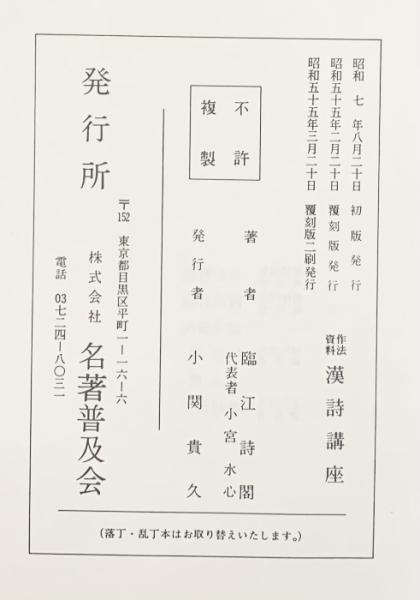 昭和七年八月二十日 初版発行
昭和五十五年二月二十日 覆刻版発行
昭和五十五年三月二十日 覆刻版二刷発行
作法資料 漢詩講座
不許複製
著者 臨江詩閣
代表者 小宮水心
発行者 小関貴久
〒152 東京都目黒区平町一ー一六ー六
発行所 株式会社 名著普及会
電話 03七二四ー八〇三一
(落丁・乱丁本はお取り替えいたします。)